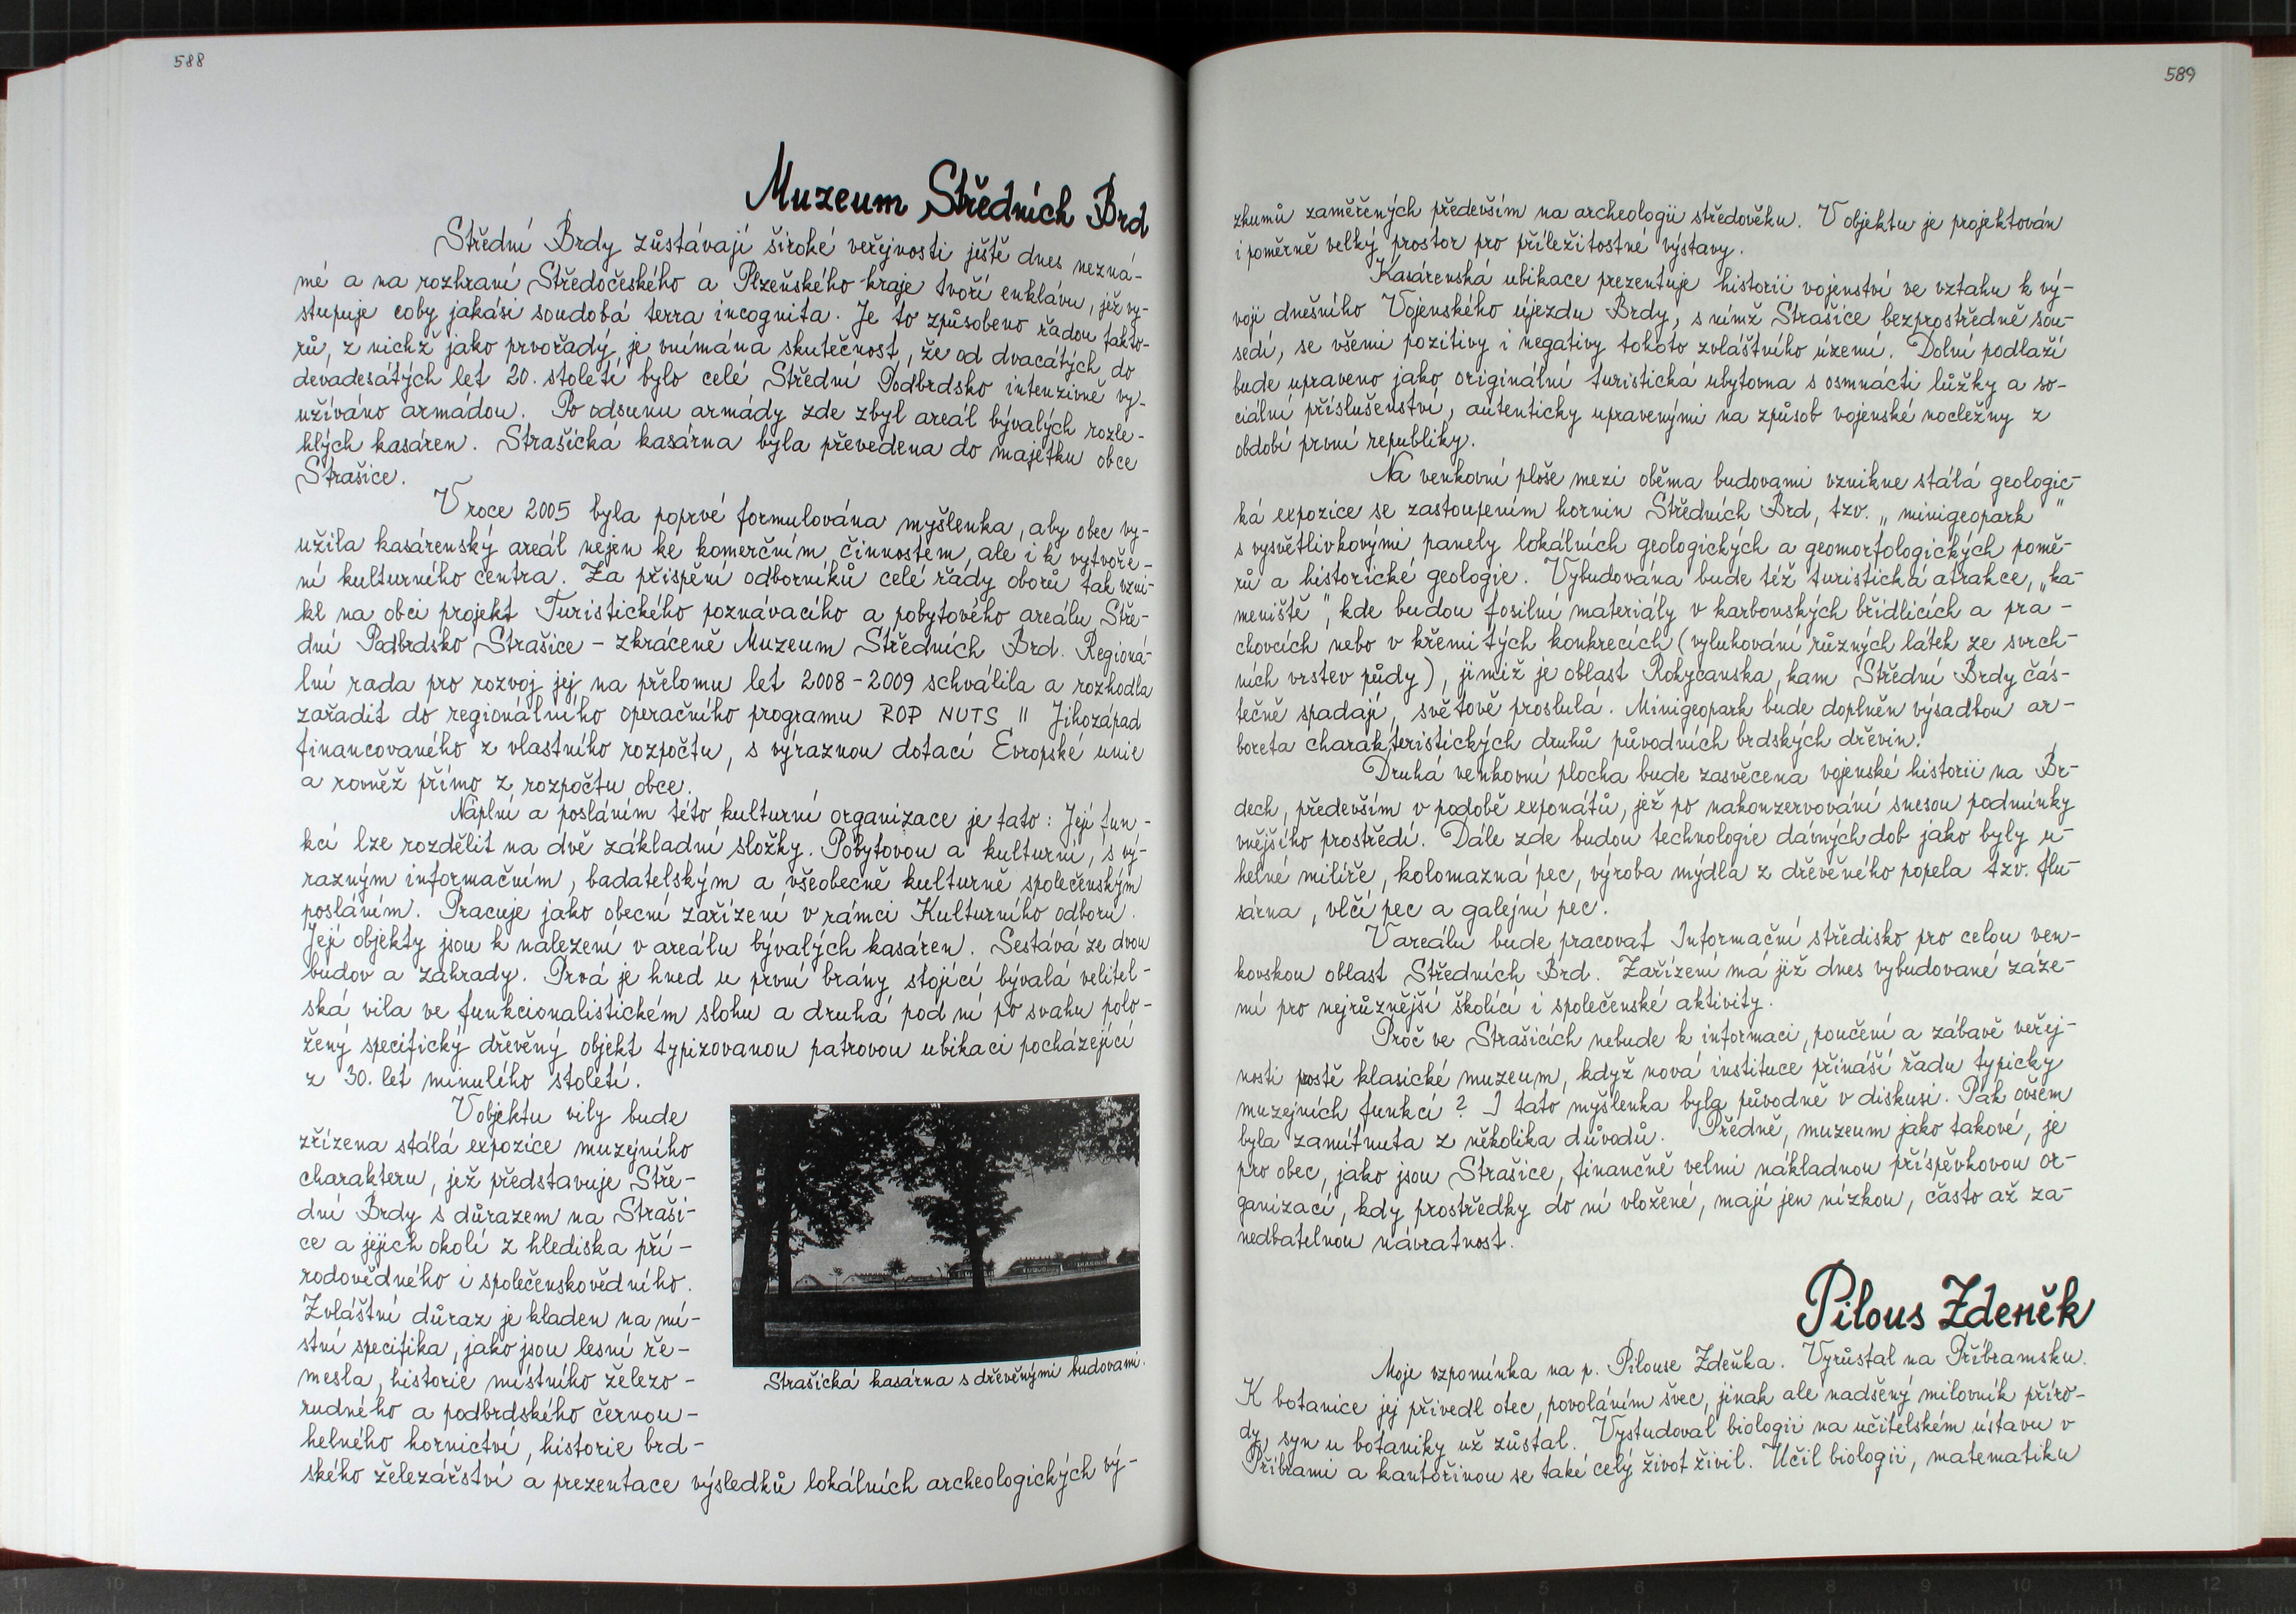 588
Muzeum Středních Brd
Střední Brdy zůstávají široké veřejnosti ještě dnes nezná-
mé a na rozhraní Středočeského a Plzeňského kraje tvoří enklávu, jež vy-
stupuje coby jakási soudobá terra incognita. Je to způsobeno řadou fakto-
rů, z nichž jako prvořadý je vnímána skutečnost, že od dvacátých do
devadesátých let 20. století bylo celé Střední Podbrdsko intenzivně vy-
užíváno armádou. Po odsunu armády zde zbyl areál bývalých rozle-
hlých kasáren. Strašická kasárna byla převedena do majetku obce
Strašice.
V roce 2005 byla poprvé formulována myšlenka, aby obec vy-
užila kasárenský areál nejen ke komerčním činnostem, ale i k vytvoře-
ní kulturního centra. Za přispění odborníků celé řády oborů tak vzni-
kl na obci projekt Turistického poznávacího a pobytového areálu Stře-
dní Podbrdsko Strašice - zkráceně Muzeum Středních Brd. Regioná-
lní rada pro rozvoj jej na přelomu let 2008-2009 schválila a rozhodla
zařadit do regionálního operačního programu ROP NUTS II Jihozápad
financovaného z vlastního rozpočtu, s výraznou dotací Evropské unie
a rovněž přímo z rozpočtu obce.
Náplní a posláním této kulturní organizace je tato: Její fun-
kci lze rozdělit na dvě základní složky. Pobytovou a kulturní, s vý-
razným informačním, badatelským a všeobecně kulturně společenským
posláním. Pracuje jako obecní zařízení v rámci Kulturního odboru.
Její objekty jsou k nalezení v areálu bývalých kasáren. Sestává ze dvou
budov a zahrady. Prvá je hned u první brány stojící bývalá velitel-
ská vila ve funkcionalistickém slohu a druhá pod ní po svahu polo-
žený specifický dřevěný objekt typizovanou patrovou ubikaci pocházející
z 30. let minulého století.
V objektu vily bude
zřízena stálá expozice muzejního
charakteru, jež představuje Stře-
dní Brdy s důrazem na Straši-
ce a jejich okolí z hlediska pří-
rodovědného i společenskovědního.
Zvláštní důraz je kladen na mí-
stní specifika, jako jsou lesní ře-
mesla, historie místního železo-
rudného a podbrdského černou-
helného hornictví, historie brd-
ského železářství a prezentace výsledků lokálních archeologických vý-
Strašická kasárna s dřevěnými budovami.
589
zkumů zaměřených především na archeologii středověku. V objektu je projektován
i poměrně velký prostor pro příležitostné výstavy.
Kasárenská ubikace prezentuje historii vojenství ve vztahu k vý-
voji dnešního Vojenského újezdu Brdy, s nímž Strašice bezprostředně sou-
sedí, se všemi pozitivy i negativy tohoto zvláštního území. Dolní podlaží
bude upraveno jako originální turistická ubytovna s osmnácti lůžky a so-
ciální příslušenství, autenticky upravenými na způsob vojenské nocležny z
období první republiky.
Na venkovní ploše mezi oběma budovami vznikne stálá geologic-
ká expozice se zastoupením hornin Středních Brd, tzv. „minigeopark"
s vysvětlivkovými panely lokálních geologických a geomorfologických pomě-
rů a historické geologie. Vybudována bude též turistická atrakce, „ka-
meniště", kde budou fosilní materiály v karbonských břidlicích a pra-
chovcích nebo v křemitých konkrecích (vyluhování různých látek ze svrch-
ních vrstev půdy), jimiž je oblast Rokycanska, kam Střední Brdy čás-
tečně spadají, světově proslulá. Minigeopark bude doplněn výsadbou ar-
boreta charakteristických druhů původních brdských dřevin.
Druhá venkovní plocha bude zasvěcena vojenské historii na Br-
dech, především v podobě exponátů, jež po nakonzervování snesou podmínky
vnějšího prostředí. Dále zde budou technologie dávných dob jako byly u-
helné milíře, kolomazná pec, výroba mýdla z dřevěného popela tzv. flu-
sárna, vlčí pec a galejní pec.
V areálu bude pracovat Informační středisko pro celou ven-
kovskou oblast Středních Brd. Zařízení má již dnes vybudované záze-
mí pro nejrůznější školící i společenské aktivity.
Proč ve Strašicích nebude k informaci, poučení a zábavě veřej-
nosti prostě klasické muzeum, když nová instituce přináší řadu typicky
muzejních funkcí? I tato myšlenka byla původně v diskusi. Pak ovšem
byla zamítnuta z několika důvodů. Předně, muzeum jako takové, je
pro obec, jako jsou Strašice, finančně velmi nákladnou příspěvkovou or-
ganizací, kdy prostředky do ní vložené, mají jen nízkou, často až za-
nedbatelnou návratnost.
Pilous Zdeněk
Moje vzpomínka na p. Pilouse Zdeňka. Vyrůstal na Příbramsku.
K botanice jej přivedl otec, povoláním švec, jinak ale nadšený milovník příro-
dy, syn u botaniky už zůstal. Vystudoval biologii na učitelském ústavu v
Příbrami a kantořinou se také celý život živil. Učil biologii, matematiku